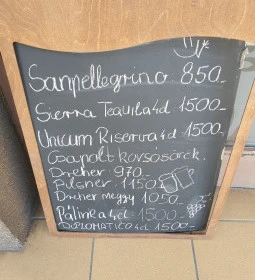 Sanpellegrino 850.-
Sierra Tequila 4d 1500.-
Unicum Riserva 4d 1500.-
Csapolt korsósörök.
Dreher 970.-
Pilsner 1150
Dreher meggy 1050.-
Pálinka 4d 1500.-
DIPLOMATICO 4d 1500.-